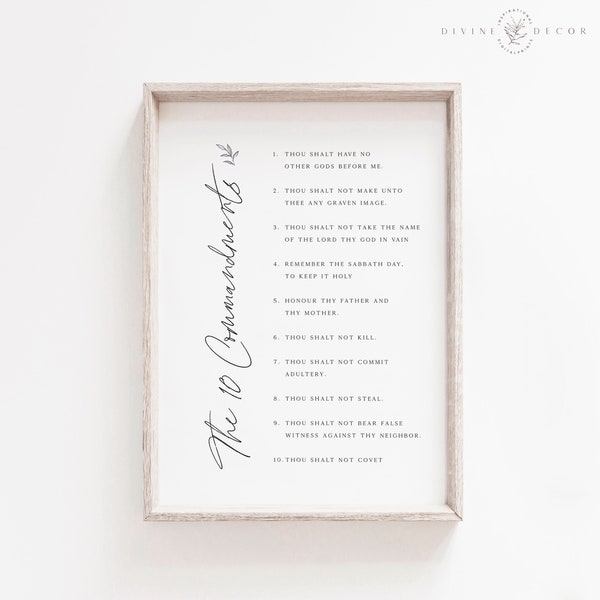 DIVINE DECOR
INSPIRATIONAL
DIGITAL PRINTS
The 10 Commandments
1. THOU SHALT HAVE NO
OTHER GODS BEFORE ME.
2. THOU SHALT NOT MAKE UNTO
THEE ANY GRAVEN IMAGE.
3. THOU SHALT NOT TAKE THE NAME
OF THE LORD THY GOD IN VAIN
4. REMEMBER THE SABBATH DAY,
TO KEEP IT HOLY
5. HONOUR THY FATHER AND
THY MOTHER.
6. THOU SHALT NOT KILL.
7. THOU SHALT NOT COMMIT
ADULTERY.
8. THOU SHALT NOT STEAL.
9. THOU SHALT NOT BEAR FALSE
WITNESS AGAINST THY NEIGHBOR.
10. THOU SHALT NOT COVET